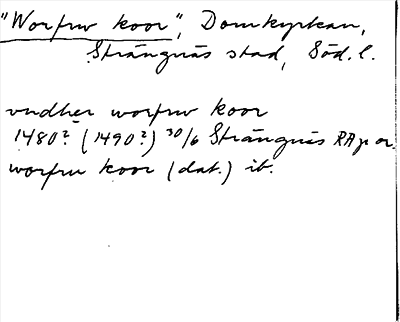 "Worfrw koor", Domkyrkan,
Strängnäs stad, Söd. l.
vndher worfrw koor
1480? (1490?) 30/6 Strängnäs RA p or.
worfrw koor (dat.) ib.